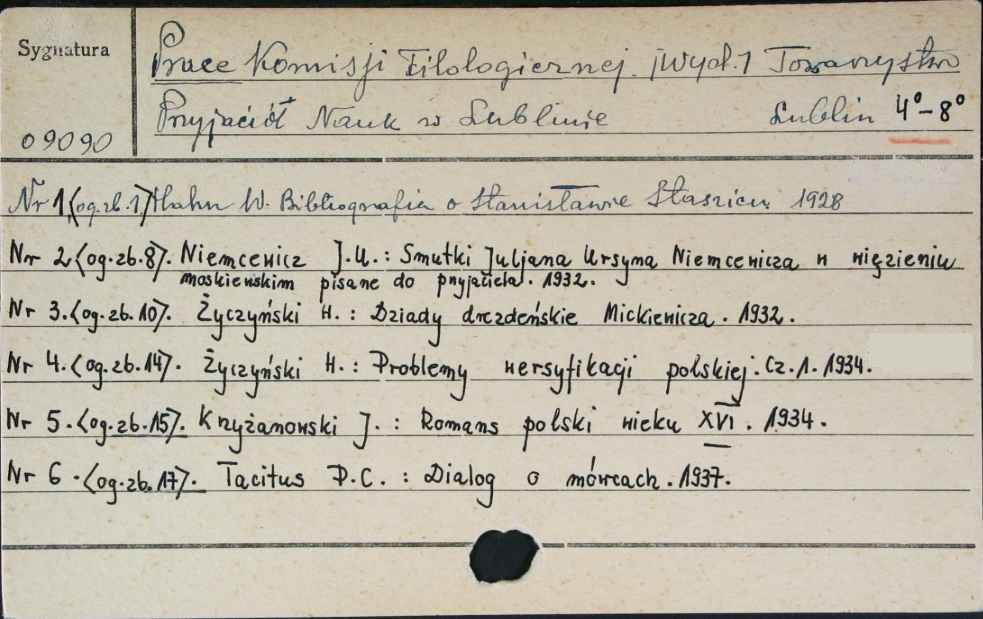 Sygnatura
Prace Komisji Filologicznej. /Wyd./ Towarzystwo
Przyjaciół Nauk w Lublinie Lublin 4°-8°
09090
Nr 1,<og.zb.1> Hahn W. Bibliografia o Stanisławie Staszicu 1928
Nr 2<og.zb.8>. Niemcewicz J.U.: Smutki Juljana Ursyna Niemcewicza w więzieniu
moskiewskim pisane do przyjaciela. 1932.
Nr 3.<og.zb.10>. Życzyński H.: Dziady drezdeńskie Mickiewicza. 1932.
Nr 4.<og.zb.14>. Życzyński H.: Problemy wersyfikacji polskiej. Cz.1. 1934.
Nr 5.<og.zb.15>. Krzyżanowski J.: Romans polski wieku XVI. 1934.
Nr 6.<og.zb.17>. Tacitus P.C.: Dialog o mówcach. 1937.